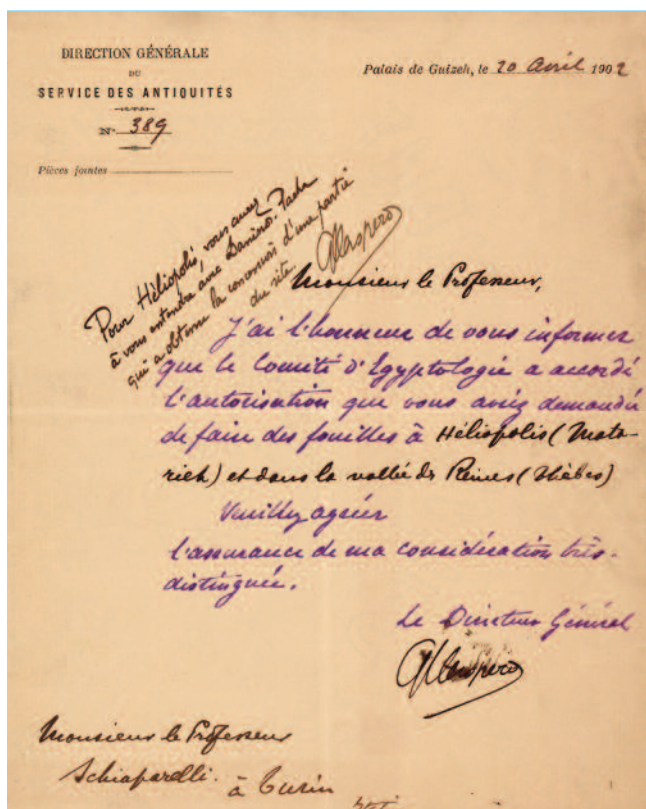 DIRECTION GÉNÉRALE
DU
SERVICE DES ANTIQUITÉS
N° 389
Pièces jointes
Palais de Guizeh, le 20 Avril 1902
Pour Héliopolis, vous aurez
à vous entendre avec Daninos-Pacha
qui a obtenu la concession d'une partie
du site
GMaspero
Monsieur le Professeur,
J'ai l'honneur de vous informer
que le Comité d'Egyptologie a accordé
l'autorisation que vous aviez demandée
de faire des fouilles à Héliopolis (Mata-
rieh) et dans la vallée des Reines (Thèbes)
Veuillez agréer
l'assurance de ma considération très-
distinguée.
Le Directeur Général
GMaspero
Monsieur le Professeur
Schiaparelli. à Turin